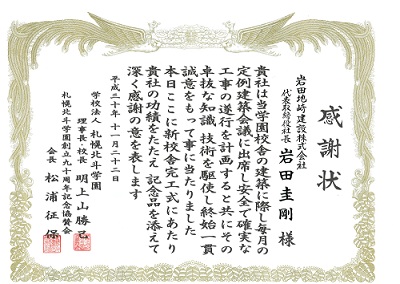 感謝状
岩田地崎建設株式会社
代表取締役社長 岩田圭剛様
貴社は当学園校舎の建築に際し毎月の
定例建築会議に出席し安全で確実な
工事の遂行を計画すると共にその
卓抜な知識技術を駆使し終始一貫
誠意をもって事に当たりました
本日ここに新校舎完工式にあたり
貴社の功績をたたえ記念品を添えて
深く感謝の意を表します
平成二十年十一月二十二日
学校法人 札幌北斗学園
理事長・校長 明上山勝己
札幌北斗学園創立九十周年記念協賛会
会長 松浦征保